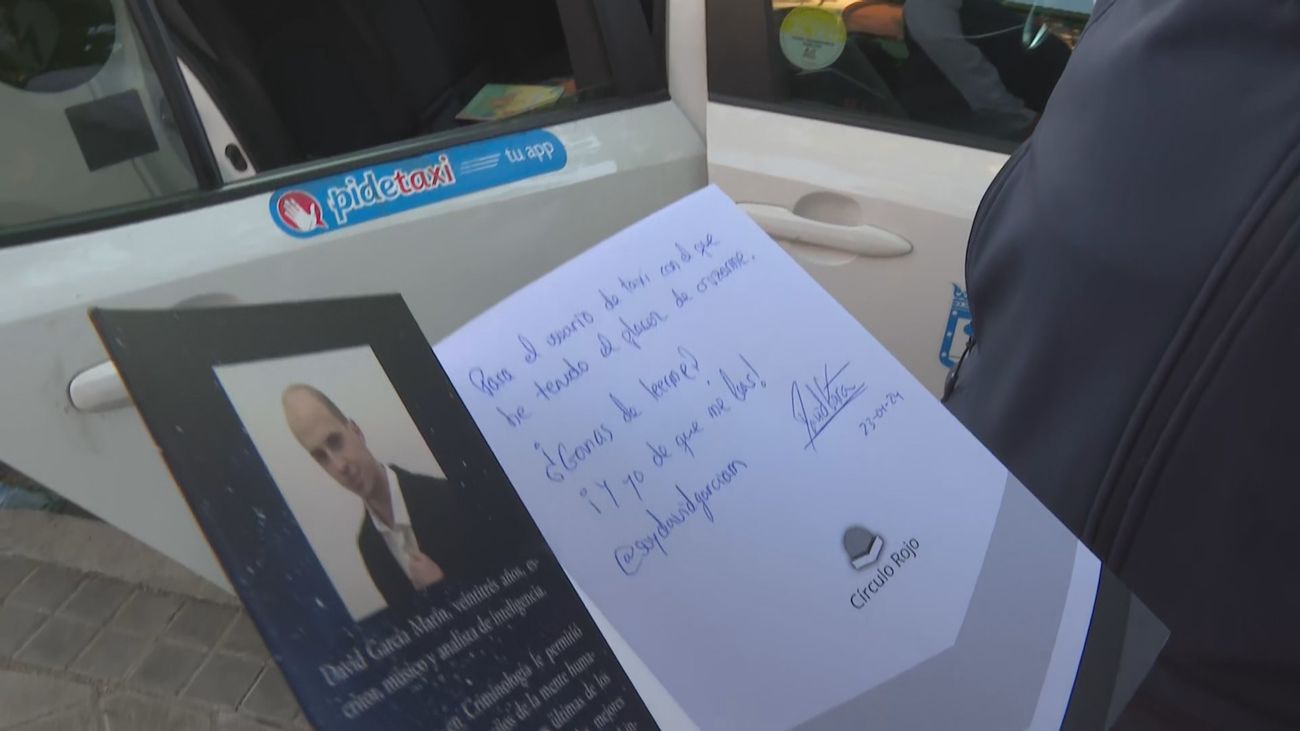 pidetaxi tu app
Para el usuario de taxi con el que
he tenido el placer de cruzarme.
¿Ganas de leerme?
¡Y yo de que me leas!
@soydavidgarciam
23-01-24
Círculo Rojo
David García Marín, veintitrés años, es-
critor, músico y analista de inteligencia.
en Criminología le permitió
de la mente huma-
últimas de los
mejores